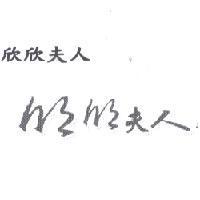 欣欣夫人
欣欣夫人